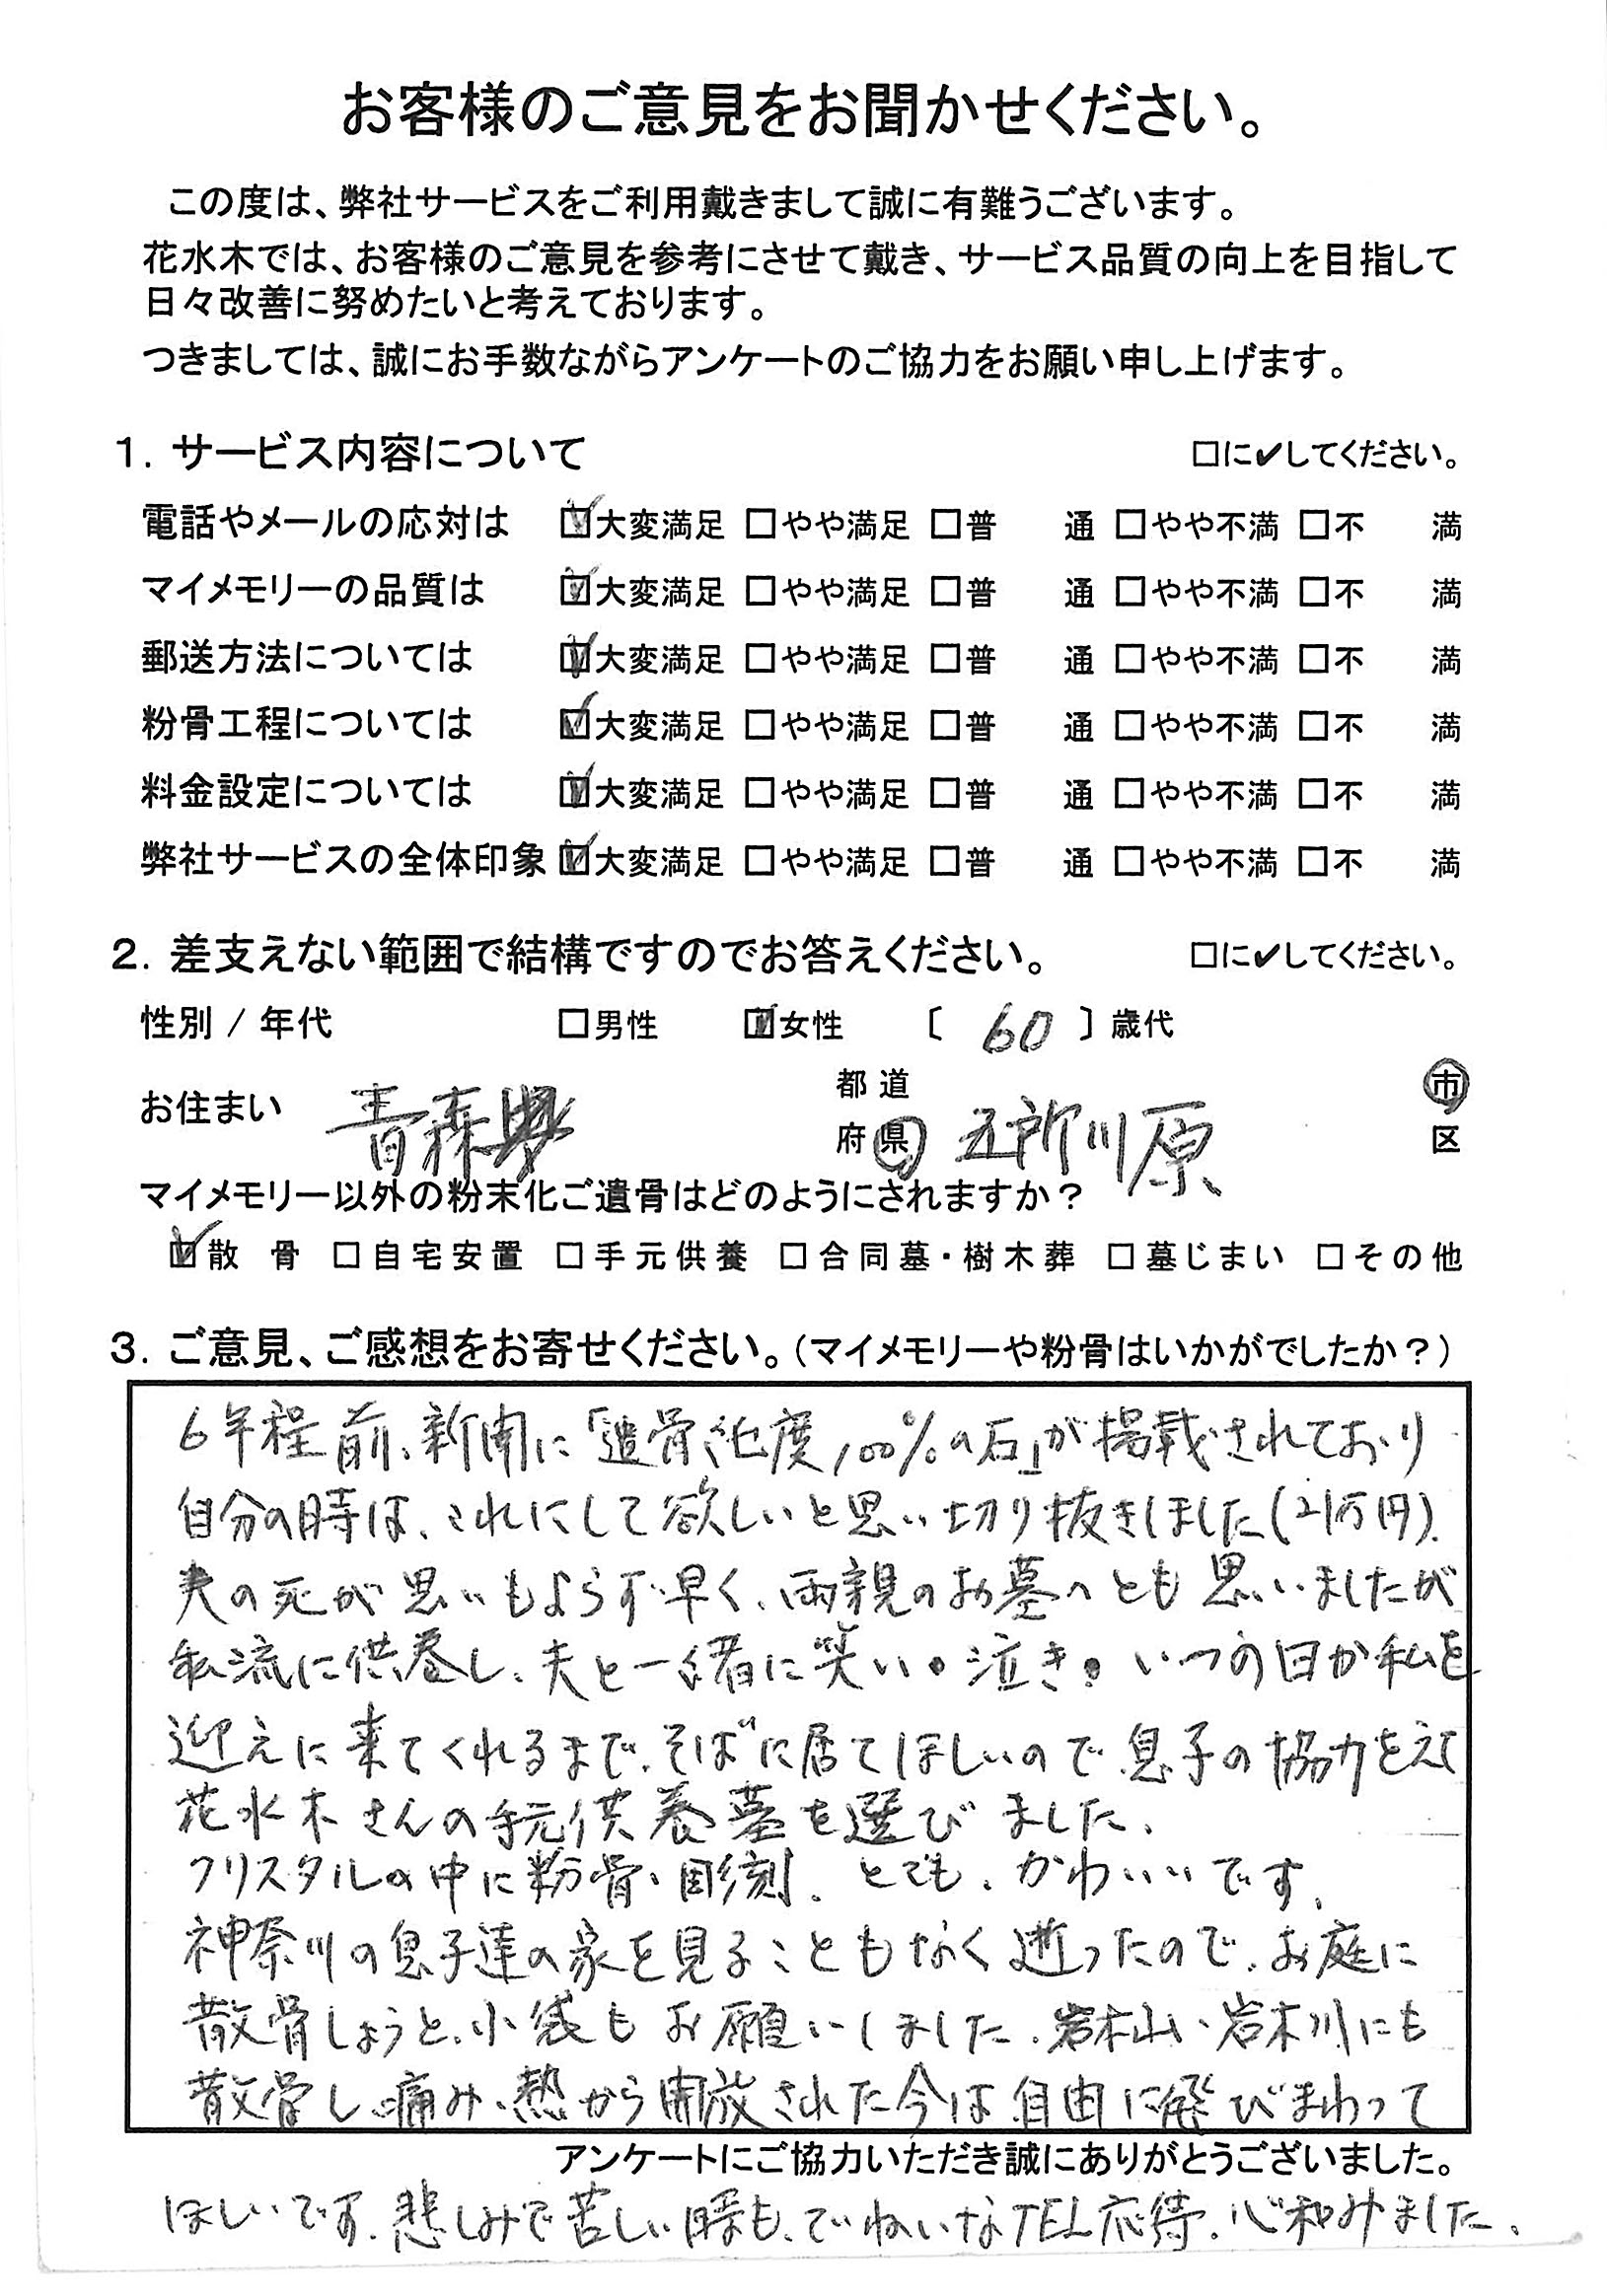 お客様のご意見をお聞かせください。
この度は、弊社サービスをご利用戴きまして誠に有難うございます。
花水木では、お客様のご意見を参考にさせて戴き、サービス品質の向上を目指して
日々改善に努めたいと考えております。
つきましては、誠にお手数ながらアンケートのご協力をお願い申し上げます。
1. サービス内容について □に✔してください。
電話やメールの応対は ☑大変満足 □やや満足 □普 通 □やや不満 □不 満
マイメモリーの品質は ☑大変満足 □やや満足 □普 通 □やや不満 □不 満
郵送方法については ☑大変満足 □やや満足 □普 通 □やや不満 □不 満
粉骨工程については ☑大変満足 □やや満足 □普 通 □やや不満 □不 満
料金設定については ☑大変満足 □やや満足 □普 通 □やや不満 □不 満
弊社サービスの全体印象 ☑大変満足 □やや満足 □普 通 □やや不満 □不 満
2. 差支えない範囲で結構ですのでお答えください。 □に✔してください。
性別 / 年代 □男性 ☑女性 〔 60 〕歳代
お住まい 青森 都道府県 五所川原 市区
マイメモリー以外の粉末化ご遺骨はどのようにされますか？
☑散 骨 □自宅安置 □手元供養 □合同墓・樹木葬 □墓じまい □その他
3. ご意見、ご感想をお寄せください。（マイメモリーや粉骨はいかがでしたか？）
6年程前、新聞に「遺骨純度100%の石」が掲載されており
自分の時は、これにして欲しいと思い切り抜きしました(21万円)。
夫の死が思いもよらず早く、両親のお墓へとも思いましたが
私流に供養し、夫と一緒に笑い・泣き・いつの日か私を
迎えに来てくれるまで、そばに居てほしいので息子の協力をえて
花水木さんの手元供養墓を選びました。
クリスタルの中に粉骨、彫刻、とても、かわいいです。
神奈川の息子達の家を見ることもなく逝ったので、お庭に
散骨しようと、小袋もお願いしました。岩木山、岩木川にも
散骨し、痛み、熱から開放された今は自由に飛びまわって
アンケートにご協力いただき誠にありがとうございました。
ほしいです。悲しみで苦しい時も、ていねいなTEL応待。心和みました。